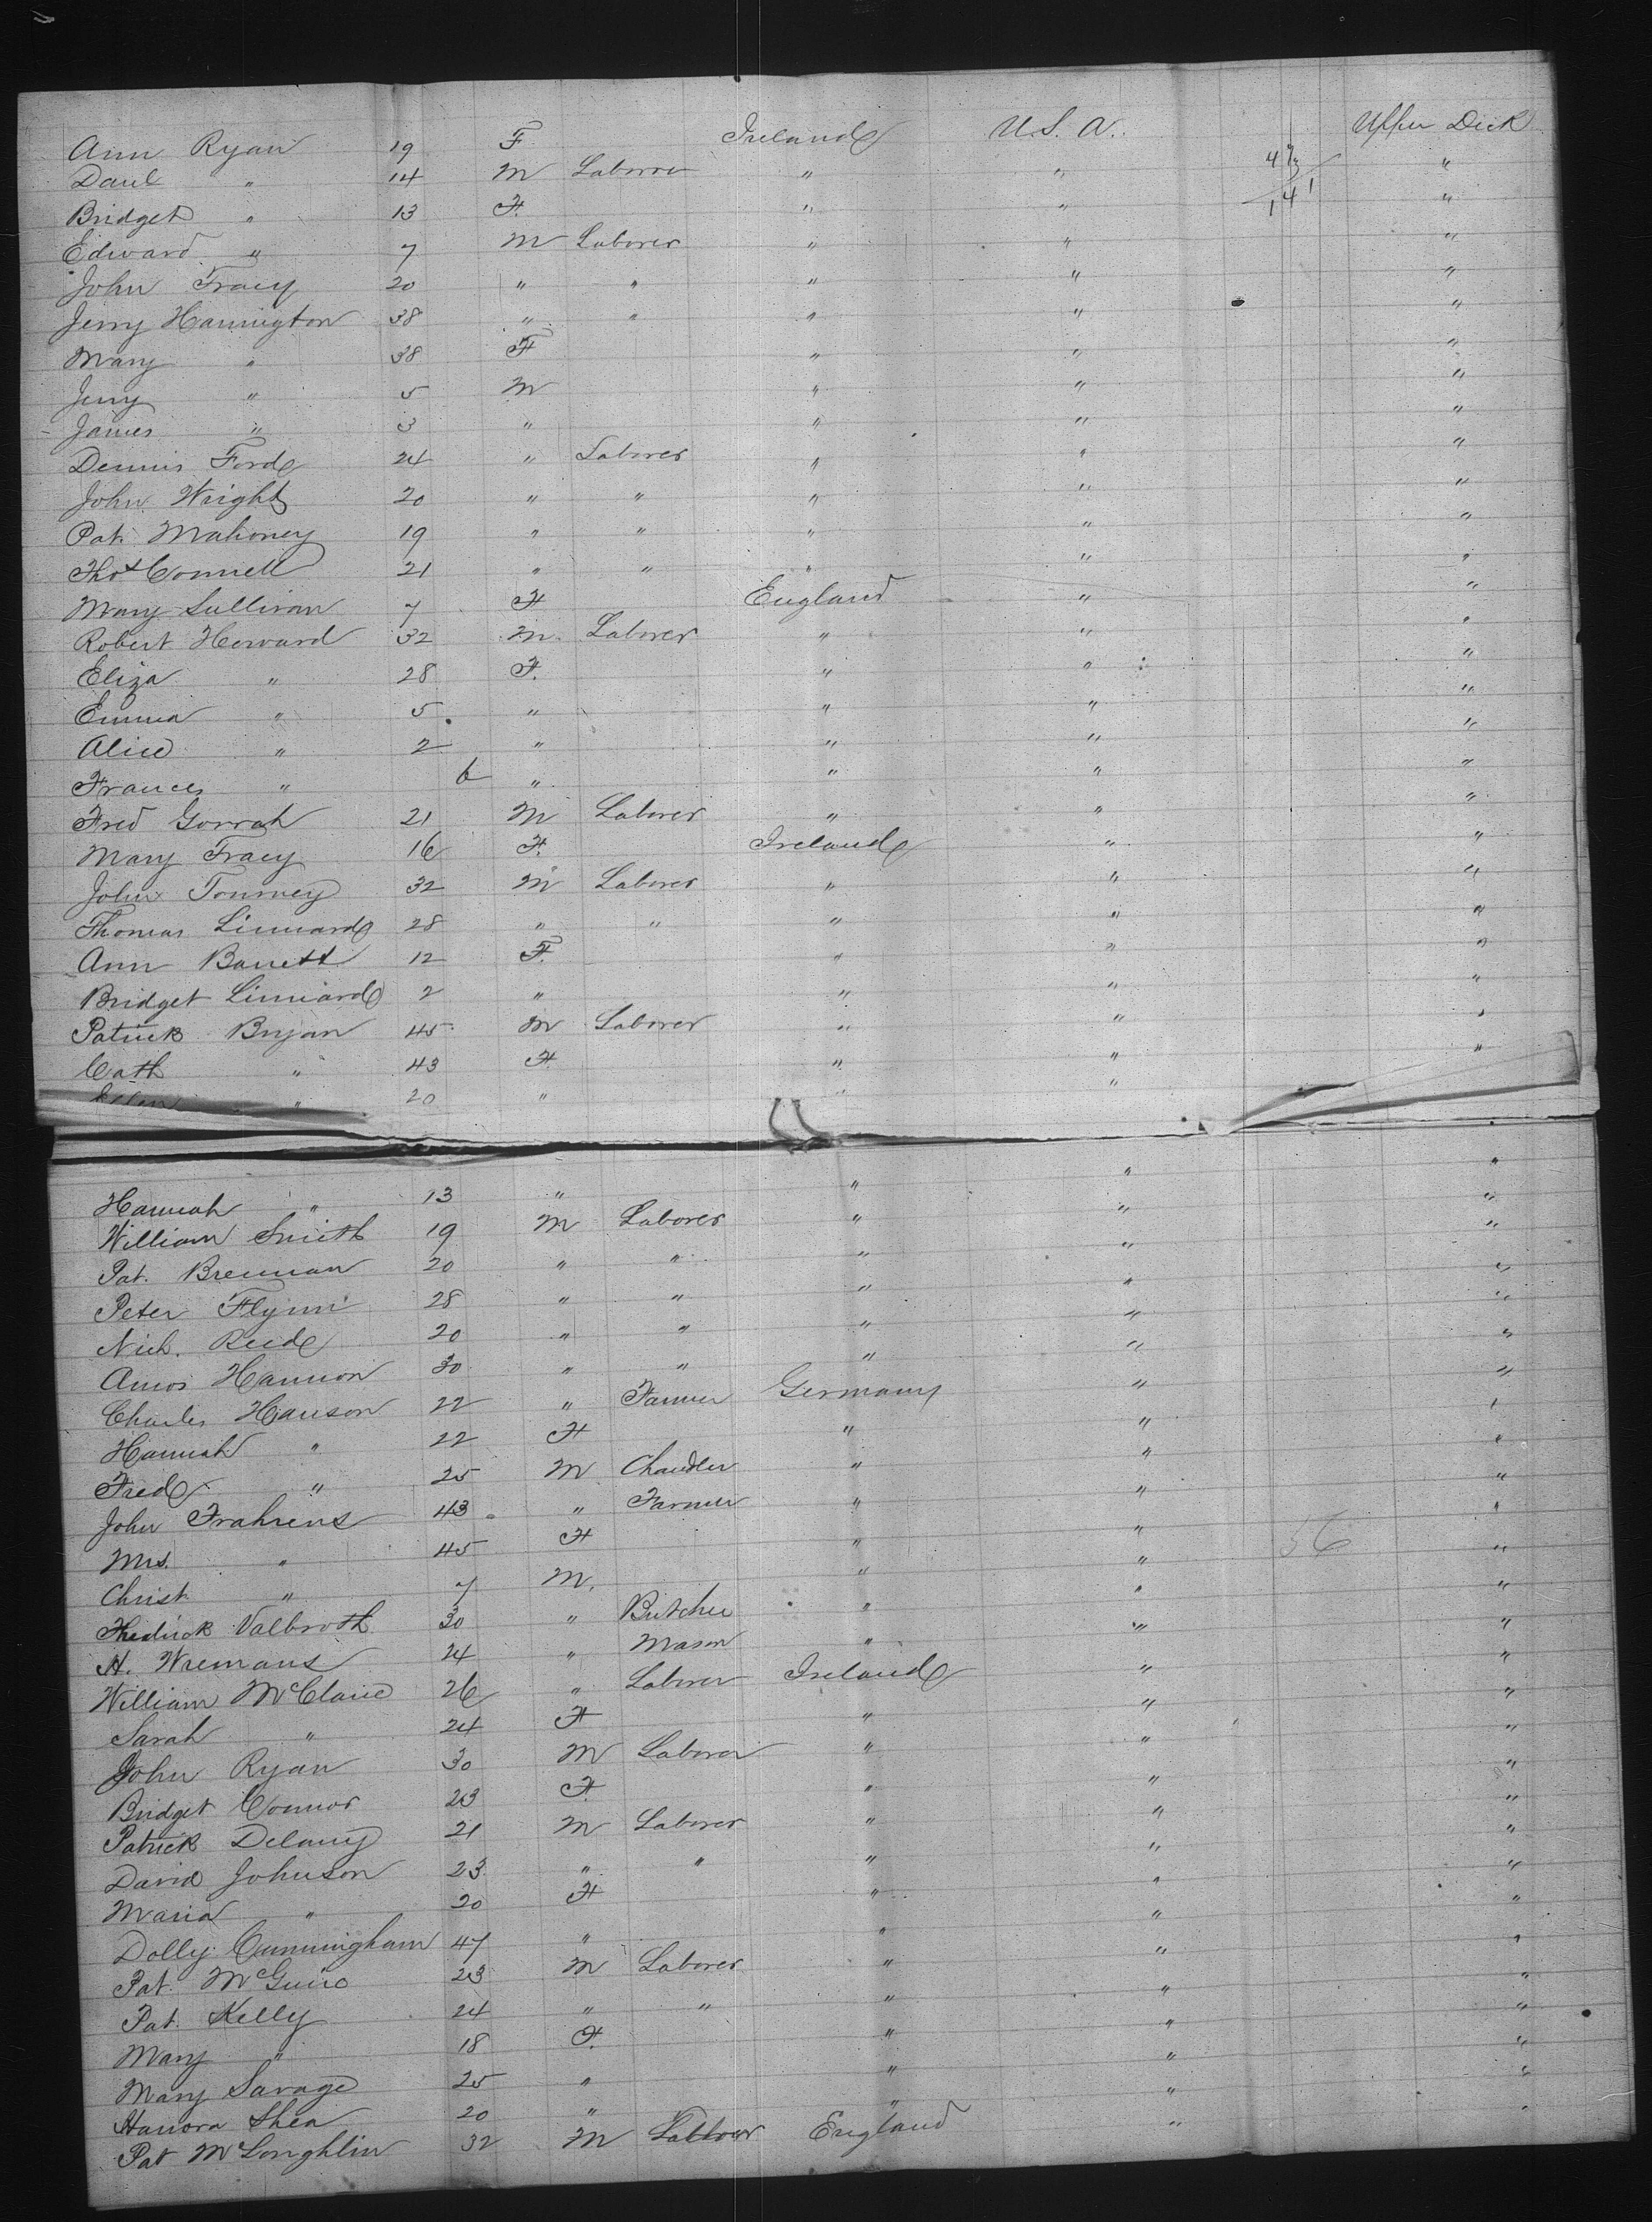 Ann Ryan 19 F Ireland U.S.A. Upper Deck
Danl " 14 M Laborer " " "
Bridget " 13 F. " " "
Edward " 7 M Laborer " " "
John Tracy 20 " " " " "
Jerry Hannington 38 " " " " "
Mary " 38 F " " "
Jerry " 5 M " " "
James " 3 " " " "
Dennis Ford 24 " Laborer " " "
John Wright 20 " " " " "
Pat. Mahoney 19 " " " " "
Thos Connell 21 " " " " "
Mary Sullivan 7 F England " "
Robert Howard 32 M. Laborer " " "
Eliza " 28 F. " " "
Emma " 5 " " " "
Alice " 2 " " " "
Frances " 6 " " " "
Fred Gorrah 21 M Laborer " " "
Mary Tracy 16 F. Ireland " "
John Tourney 32 M Laborer " " "
Thomas Linnard 28 " " " " "
Ann Barrett 12 F. " " "
Bridget Linnard 2 " " " "
Patrick Bryan 45 M Laborer " " "
Cath " 43 F. " " "
Ellen " 20 " " "
Hannah " 13 " " " "
William Smith 19 M Laborer " " "
Pat. Brennan 20 " " " " "
Peter Flynn 28 " " " " "
Nich. Reed 20 " " " " "
Amos Hannon 30 " " " " "
Charles Hanson 22 " Farmer Germany " "
Hannah " 22 F " " "
Fred " 25 M Chandler " " "
John Frahrens 43 " Farmer " " "
Mrs. " 45 F " " "
Christ " 7 M. " " "
Fredrick Valbroth 30 " Butcher " " "
H. Wremans 24 " Mason " " "
William McClane 26 " Laborer Ireland " "
Sarah " 24 F " " "
John Ryan 30 M Laborer " " "
Bridget Connor 23 F. " " "
Patrick Delany 21 M Laborer " " "
David Johnson 23 " " " " "
Maria " 20 F " " "
Dolly Cunningham 47 " " " "
Pat. McGuire 23 M Laborer " " "
Pat. Kelly 24 " " " " "
Mary " 18 F. " " "
Mary Savage 25 " " " "
Hanora Shea 20 " " " "
Pat McLoughlin 32 M Laborer England " "